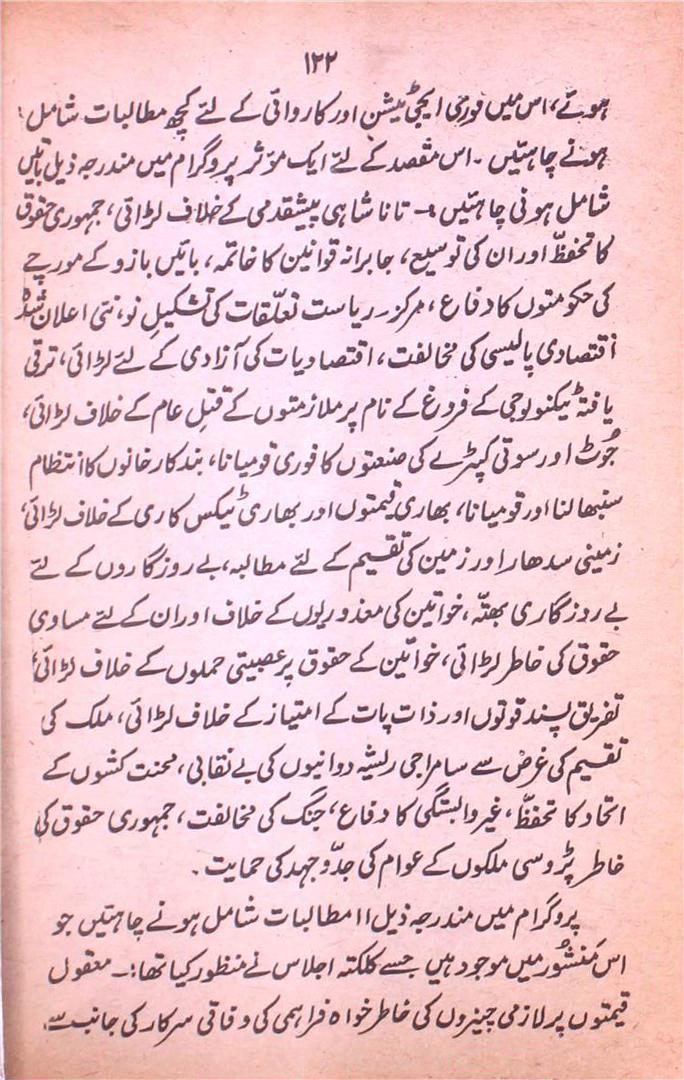 ۱۲۲
ہوئے، اس میں فوری ایجی ٹیشن اور کاروائی کے لئے کچھ مطالبات شامل
ہونے چاہئیں ۔ اس مقصد کے لئے ایک مؤثر پروگرام میں مندرجہ ذیل باتیں
شامل ہونی چاہئیں :۔ تانا شاہی پیشقدمی کے خلاف لڑائی، جمہوری حقوق
کا تحفظّ اور ان کی توسیع، جابرانہ قوانین کا خاتمہ، بائیں بازو کے مورچے
کی حکومتوں کا دفاع، مرکز ریاست تعلّقات کی تشکیلِ نو، نئی اعلان شدہ
اقتصادی پالیسی کی مخالفت، اقتصادیات کی آزادی کے لئے لڑائی، ترقی
یافتہ ٹیکنولوجی کے فروغ کے نام پر ملازمتوں کے قتلِ عام کے خلاف لڑائی،
جُوٹ اور سوتی کپڑے کی صنعتوں کا فوری قومیانا، بند کارخانوں کا انتظام
سنبھالنا اور قومیانا، بھاری قیمتوں اور بھاری ٹیکس کاری کے خلاف لڑائی،
زمینی سدھار اور زمین کی تقسیم کے لئے مطالبہ، بے روزگاروں کے لئے
بے روزگاری بھتّہ، خواتین کی معذوریوں کے خلاف اور ان کے لئے مساوی
حقوق کی خاطر لڑائی، خواتین کے حقوق پر عصبیتی حملوں کے خلاف لڑائی،
تفریق پسند قوتوں اور ذات پات کے امتیاز کے خلاف لڑائی، ملک کی
تقسیم کی غرض سے سامراجی ریشہ دوانیوں کی بے نقابی، محنت کشوں کے
اتحاد کا تحفظّ، غیر وابستگی کا دفاع، جنگ کی مخالفت، جمہوری حقوق کی
خاطر پڑوسی ملکوں کے عوام کی جدّوجہد کی حمایت ۔
پروگرام میں مندرجہ ذیل ۱۱ مطالبات شامل ہونے چاہئیں جو
اس مَنشُور میں موجود ہیں جسے کلکتہ اجلاس نے منظور کیا تھا:۔ معقول
قیمتوں پر لازمی چیزوں کی خاطر خواہ فراہمی کی وفاقی سرکار کی جانب سے